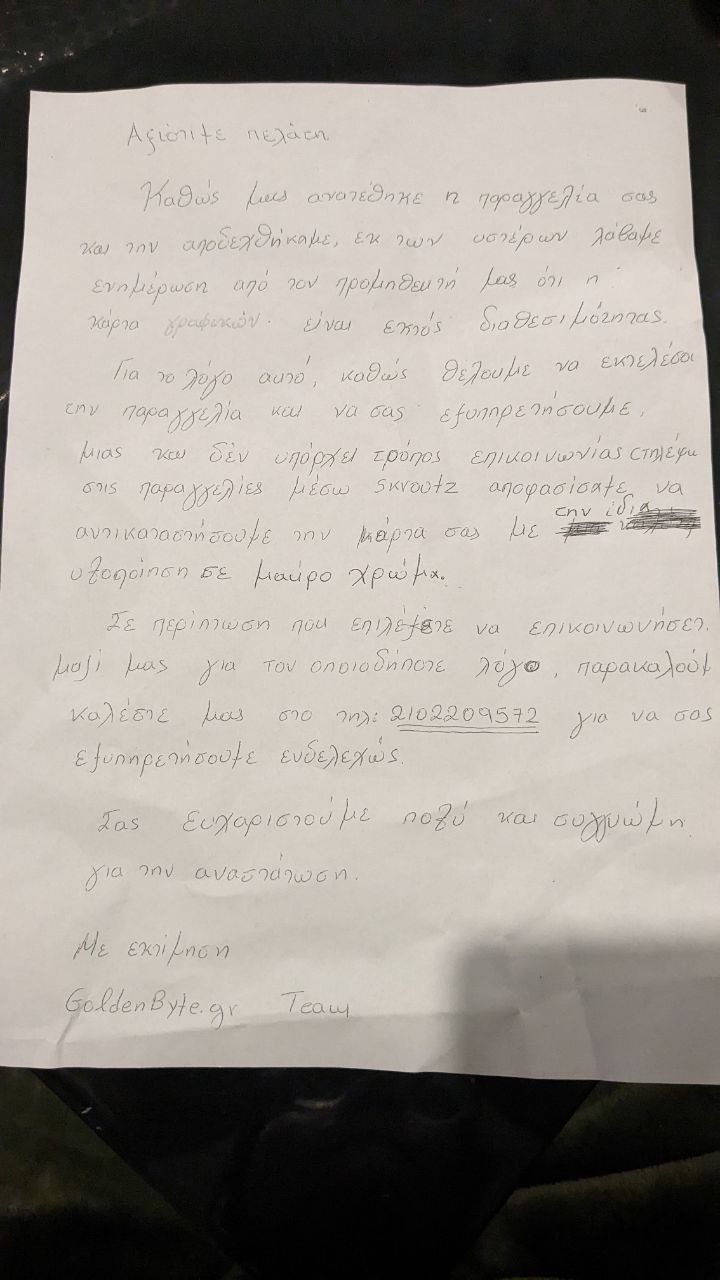 Αξιότιτε πελάτη
Καθώς μας ανατέθηκε η παραγγελία σας
και την αποδεχθήκαμε, εκ των υστέρων λάβαμε
ενημέρωση από τον προμηθευτή μας ότι η
κάρτα γραφικών είναι εκτός διαθεσιμότητας.
Για το λόγο αυτό, καθώς θέλουμε να εκτελέσου
την παραγγελία και να σας εξυπηρετήσουμε,
μιας και δέν υπάρχει τρόπος επικοινωνίας
στις παραγγελίες μέσω skroutz αποφασίσατε να
αντικαταστήσουμε την κάρτα σας με την ίδια
υλοποίηση σε μαύρο χρώμα.
Σε περίπτωση που επιλέξετε να επικοινωνήσετ.
μαζί μας για τον οποιοδήποτε λόγο, παρακαλούμ
καλέστε μας στο τηλ: 2102209572 για να σας
εξυπηρετήσουμε ενδελεχώς.
Σας ευχαριστούμε πολύ και συγγνώμη
για την αναστάτωση.
Με εκτίμηση
GoldenByte.gr Team